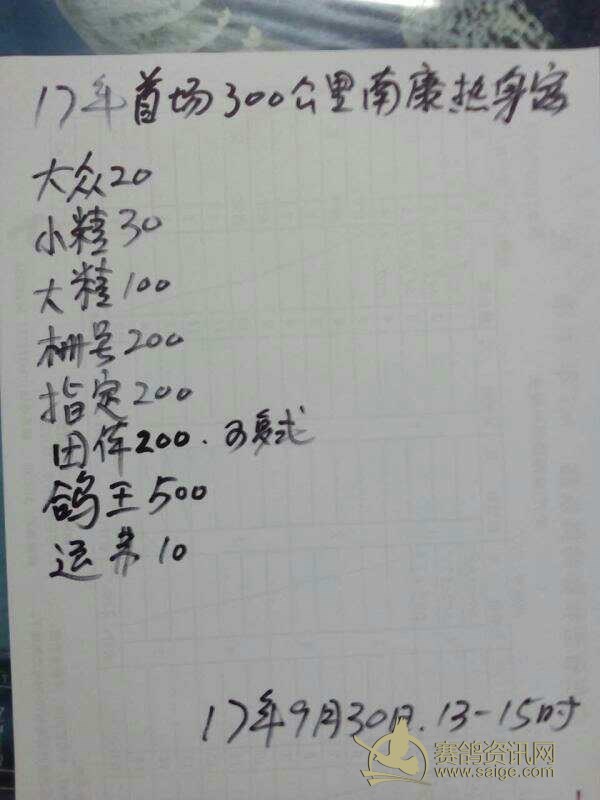 17年首场300公里南康热身赛
大众20
小精30
大精100
栅号200
指定200
团体200.可复式
鸽王500
运来10
17年9月30日.13-15时
赛鸽资讯网
www.saige.com